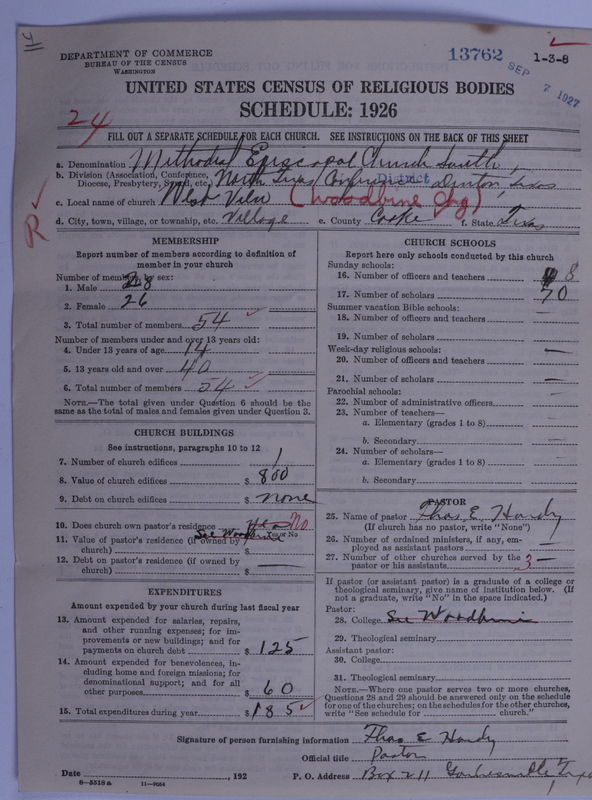 DEPARTMENT OF COMMERCE
BUREAU OF THE CENSUS
WASHINGTON
13762
1-3-8
SEP 7 1927
UNITED STATES CENSUS OF RELIGIOUS BODIES
SCHEDULE: 1926
24
FILL OUT A SEPARATE SCHEDULE FOR EACH CHURCH. SEE INSTRUCTIONS ON THE BACK OF THIS SHEET
a. Denomination Methodist Episcopal Church South,
b. Division (Association, Conference, Diocese, Presbytery, Synod, etc.) North Texas Conference District Denton, Texas
c. Local name of church West View (Woodbine Chg)
R
d. City, town, village, or township, etc. Village e. County Cooke f. State Texas
MEMBERSHIP
Report number of members according to definition of
member in your church
Number of members by sex:
1. Male 28
2. Female 26
3. Total number of members 54
Number of members under and over 13 years old:
4. Under 13 years of age 14
5. 13 years old and over 40
6. Total number of members 54
NOTE.—The total given under Question 6 should be the
same as the total of males and females given under Question 3.
CHURCH BUILDINGS
See instructions, paragraphs 10 to 12
7. Number of church edifices 1
8. Value of church edifices $ 800
9. Debt on church edifices $ none
10. Does church own pastor's residence No
Yes or No
11. Value of pastor's residence (if owned by See Woodbine
church) $
12. Debt on pastor's residence (if owned by
church) $ —
EXPENDITURES
Amount expended by your church during last fiscal year
13. Amount expended for salaries, repairs,
and other running expenses; for im-
provements or new buildings; and for
payments on church debt $ 125
14. Amount expended for benevolences, in-
cluding home and foreign missions; for
denominational support; and for all
other purposes $ 60
15. Total expenditures during year $ 185
CHURCH SCHOOLS
Report here only schools conducted by this church
Sunday schools:
16. Number of officers and teachers 8
17. Number of scholars 70
Summer vacation Bible schools:
18. Number of officers and teachers —
19. Number of scholars
Week-day religious schools: —
20. Number of officers and teachers
21. Number of scholars —
Parochial schools:
22. Number of administrative officers —
23. Number of teachers—
a. Elementary (grades 1 to 8) —
b. Secondary —
24. Number of scholars—
a. Elementary (grades 1 to 8) —
b. Secondary
PASTOR
25. Name of pastor Thos E. Hardy
(If church has no pastor, write "None")
26. Number of ordained ministers, if any, em-
ployed as assistant pastors
27. Number of other churches served by the 3 —
pastor or his assistants
If pastor (or assistant pastor) is a graduate of a college or
theological seminary, give name of institution below. (If
not a graduate, write "No" in the space indicated.)
Pastor:
28. College See Woodbine
29. Theological seminary
Assistant pastor:
30. College
31. Theological seminary
NOTE.—Where one pastor serves two or more churches,
Questions 28 and 29 should be answered only on the schedule
for one of the churches; on the schedules for the other churches,
write "See schedule for church."
Signature of person furnishing information Thos E Hardy
Official title Pastor
Date , 192 P. O. Address Box 211 Gainesville, Texas
8—5518a 11—9064